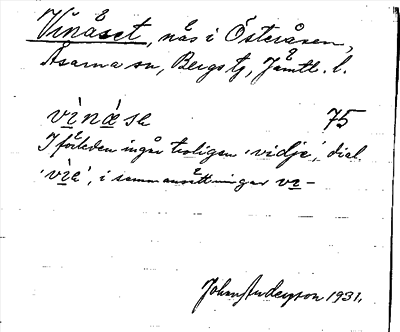 Vinåset, nås i Österåsen,
Åsarna sn, Bergs tg, Jämtl. l.
vìnásə 75
I förleden ingår troligen 'vidje', dial.
'viə', i sammansättningar vi-
Johan Anderson 1931.